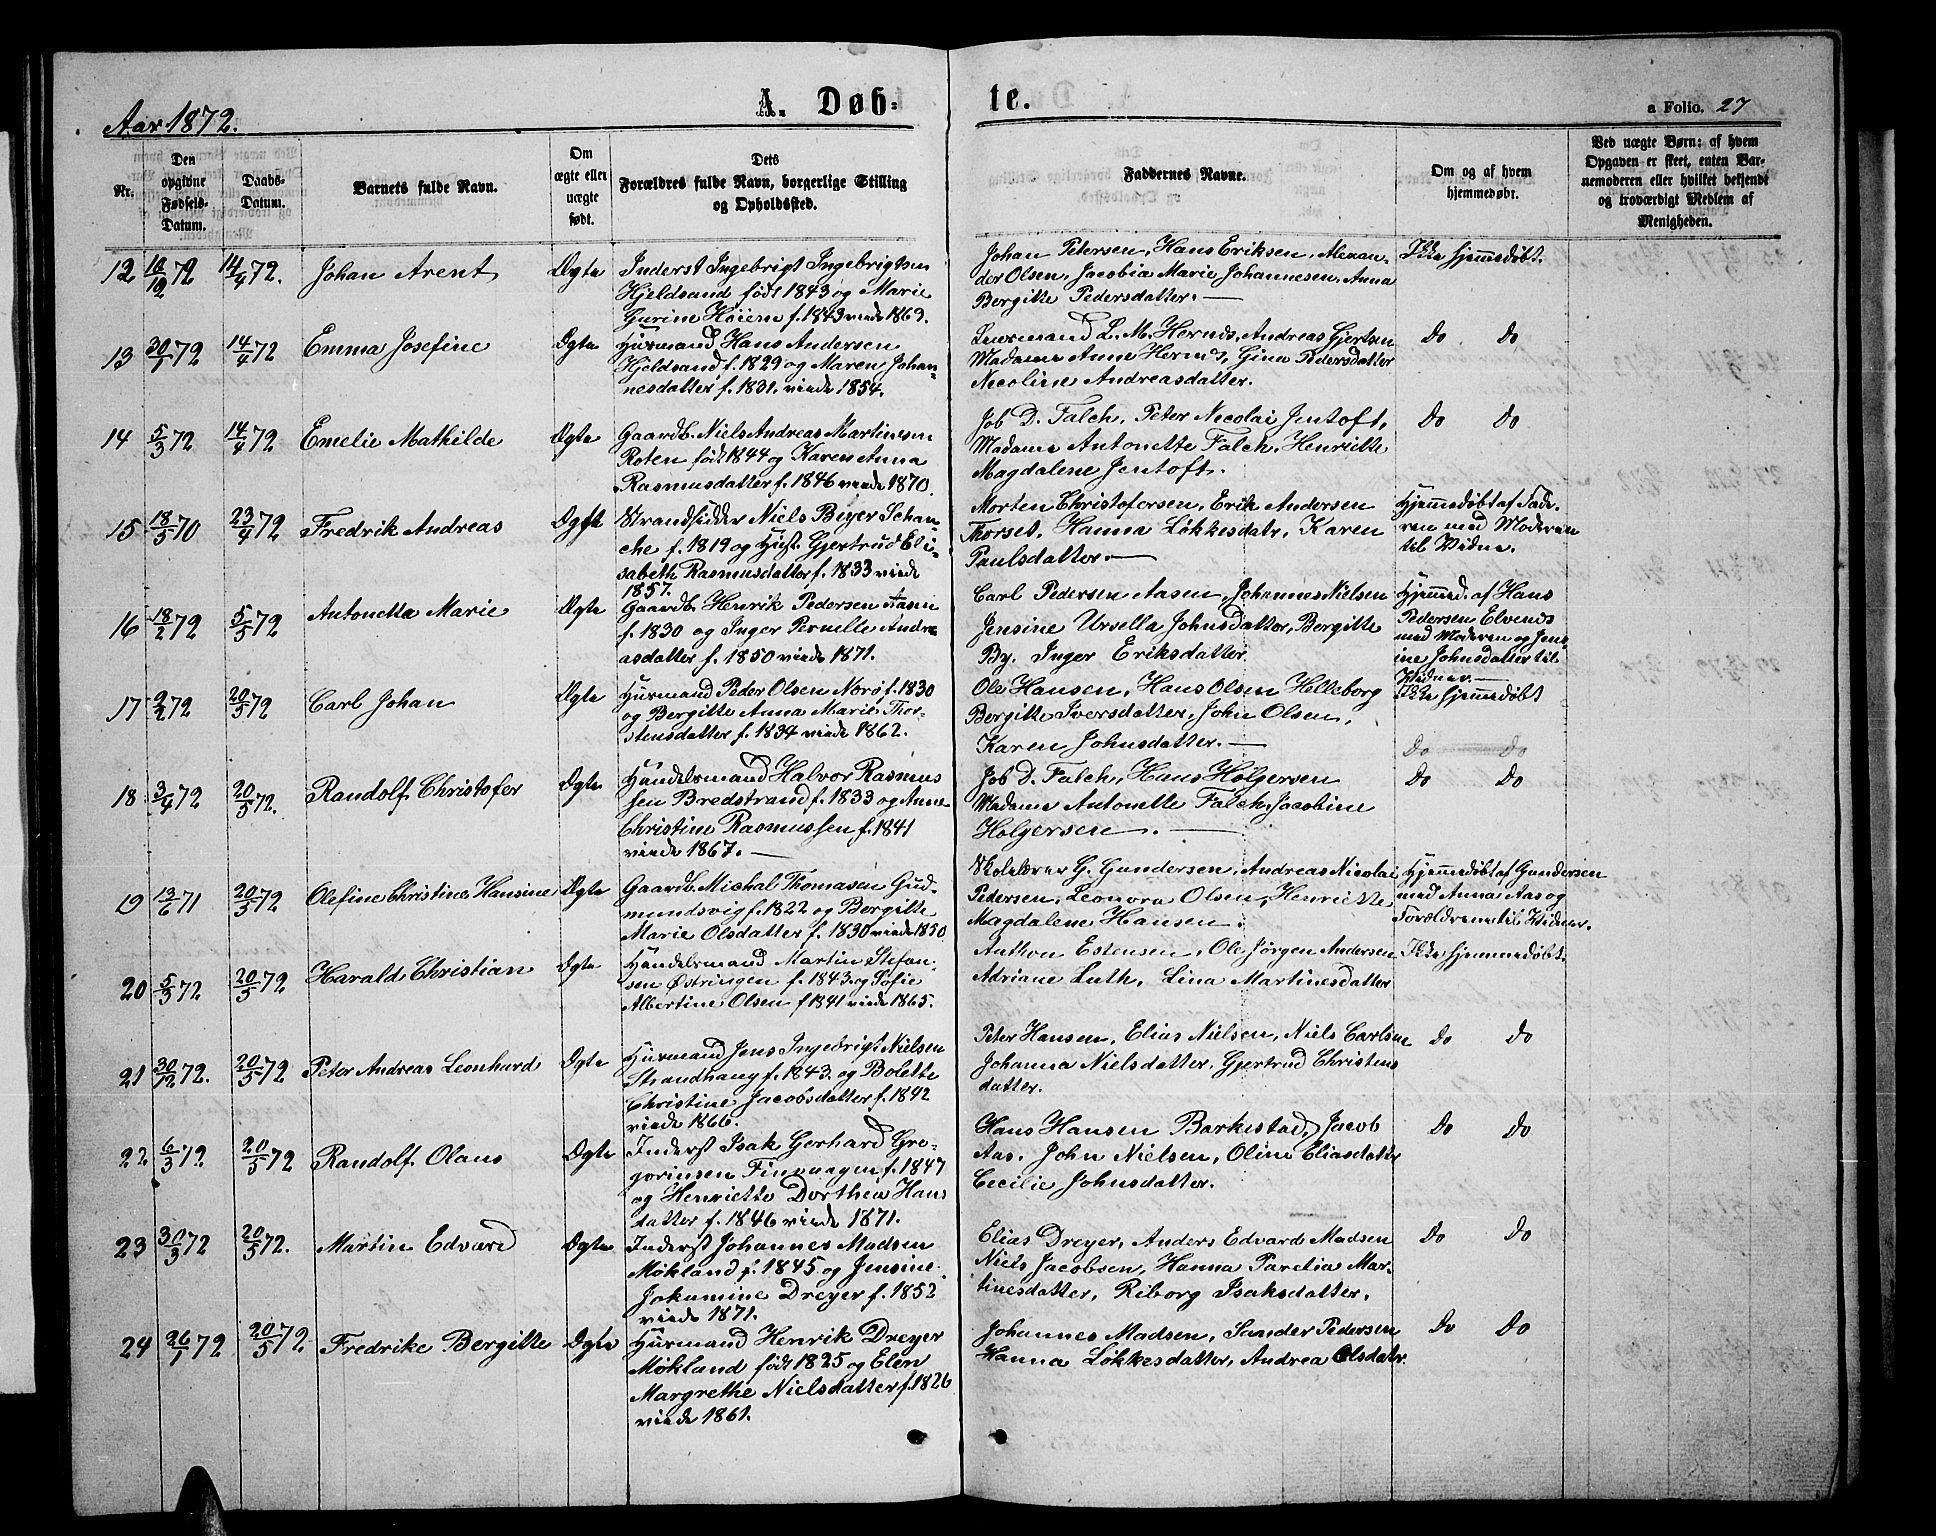 Aar 1872.
A. Døb-
te.
a Folio. 27
Nr.
Den opgivne Fødsels-Datum.
Daabs-Datum.
Barnets fulde Navn.
Om ægte eller uægte født.
Dets Forældres fulde Navn, borgerlige Stilling og Opholdssted.
Faddernes Navne.
Om og af hvem hjemmedøbt.
Ved uægte Børn: af hvem Opgaven er skeet, enten Barnemoderen eller hvilket bekjendt og troværdigt Medlem af Menigheden.
12 72 14/4 72. Johan Arent Ægte
Inderst Ingebrigt Ingebrigtsen
Hjeldsand født 1843 og Marie
Gurine Høiem f. 1843 viede 1863.
Johan Petersen, Hans Eriksen, Alexan-
der Olsen, Jacobia Marie Johannesen, Anna
Bergitte Pedersdatter.
Ikke hjemmedøbt.
13 30/1 72 14/4 72 Emma Josefine Ægte
Husmand Hans Andersen
Hjeldsand f. 1829 og Maren Johan-
nesdatter f. 1831. viede 1854.
L. M. Hernds, Andreas Gjertsen
Madame Anne Hernds, Gine Pedersdatter
Nicoline Andreasdatter.
Do Do
14 5/3 72 14/4 72 Emelie Mathilde Ægte
Gaardb. Niels Andreas Martinesen
Roten født 1844 og Karen Anna
Rasmusdatter f. 1846 viede 1870.
Job D. Falch, Peter Nicolai Jentoft,
Madame Antonette Falch, Henriette
Magdalene Jentoft.
Do Do
15 18/5 70 23/4 72 Fredrik Andreas Ægte
Strandsidder Niels Beyer Schan-
che f. 1819 og Hust. Gjertrud Eli-
sabeth Rasmusdatter f. 1833 viede
1857.
Morten Christofersen, Erik Andersen
Thorset, Hanna Løkkesdatr, Karen
Paulsdatter.
Hjemmedøbt af Fade-
ren med Moderen
til Vidne.
16 18/2 72 5/5 72 Antonetta Marie Ægte
Gaardb. Henrik Pedersen Aasen
f. 1830 og Inger Pernelle Andre-
asdatter f. 1850 viede 1871.
Carl Pedersen Aasen, Johannes Nielsen
Jensine Ursella Johnsdatter, Bergitte
By. Inger Eriksdatter
Hjemmed. af Hans
Pedersen Elvends
med Moderen og Jens-
ine Johnsdatter til
Vidner.
17 9/2 72 20/5 72 Carl Johan Ægte
Husmand Peder Olsen Norø f. 1830
og Bergitte Anna Marie Thor-
stensdatter f. 1834 viede 1862.
Ole Hansen, Hans Olsen Helleborg
Bergitte Iversdatter, John Olsen,
Karen Johnsdatter.
Ikke hjemmedøbt
Do Do
18 3/4 72 20/5 72. Randolf Christofer Ægte
Handelsmand Halvor Rasmus
sen Bredstrand f. 1833 og Anne
Christine Rasmussen f. 1841
viede 1867.
Job D. Falch, Hans Holgersen
Madame Antonette Falch, Jacobine
Holgersen.
Do Do
19 13/6 71 20/5 72 Olefine Christine Hansine Ægte
Gaardb. Michal Thomasen Gud-
mundsvig f. 1822 og Bergitte
Marie Olsdatter f. 1830 viede 1850
Skolelærer G. Gundersen, Andreas Nicolai
Pedersen, Leonora Olsen, Henriette
Magdalene Hansen.
Hjemmedøbt af Gundersen
med Anna Aas og
Forældrene til Vidner.
20 5/3 72 20/5 72 Harald Christian Ægte
Handelsmand Martin Stefan-
sen Østringen f. 1843. og Sofie
Albertine Olsen f 1841 viede 1865.
Anthon Estensen, Ole Jørgen Andersen
Adriane Luth, Lina Martinesdatter
Ikke hjemmedøbt.
21 30/12 72. 20/5 72 Peter Andreas Leonhard Ægte
Husmand Jens Ingebrigt Nielsen
Strandhaug f. 1843. og Bolette
Christine Jacobsdatter f. 1842
viede 1866.
Peter Hansen, Elias Nielsen, Niels Carlsen
Johanna Nielsdatter, Gjertrud Christens
datter.
Do Do
22 6/3 72 20/5 72 Randolf Olaus Ægte
Inderst Isak Gerhard Gre-
gorinsen Finvaagen f. 1847
og Henriette Dorthea Hans
datter f. 1846 viede 1871.
Hans Hansen Barkestad, Jacob
Aas. John Nielsen, Oline Eliasdatter
Cecilie Johnsdatter.
Do Do
23 30/3 72 20/5 72. Martin Edvard Ægte
Inderst Johannes Madsen
Møkland f. 1845 og Jensine
Johamine Dreyer f. 1852
viede 1871.
Elias Dreyer, Anders Edvard Madsen
Niels Jacobsen, Hanna Paretia Mar-
tinesdatter, Riborg Isaksdatter.
Do Do
24 26/1 72 20/5 72 Fredrike Bergitte Ægte
Husmand Henrik Dreyer
Møkland født 1825 og Elen
Margrethe Nielsdatter f. 1826
viede 1861.
Johannes Madsen, Sander Pedersen
Hanna Løkkesdatter, Andrea Olsdatr.
Do Do